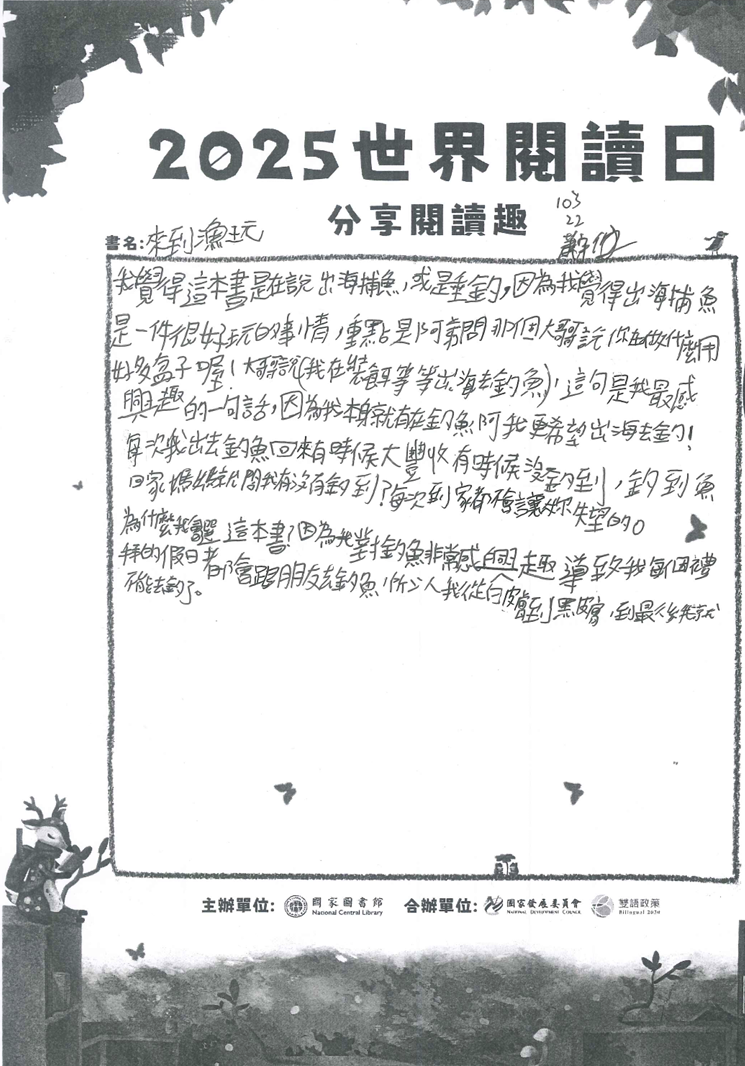 2025世界閱讀日
分享閱讀趣
103
22
書名:來到漁玩
我覺得這本書是在說出海捕魚,或是垂釣,因為我覺得出海捕魚
是一件很好玩的事情,重點是阿弟問那個大哥說你在做什麼用
好多盒子喔!大哥說(我在裝餌等等出海去釣魚),這句是我最感
興趣的一句話,因為我本身就有在釣魚阿我更希望出海去釣!
每次我出去釣魚回來有時候大豐收有時候沒釣到,釣到魚
回家媽媽問我有沒有釣到?每次到家都不會讓她失望的。
為什麼我選這本書?因為我對釣魚非常感興趣導致我每個禮
拜的假日都會跟朋友去釣魚,所以人我從白皮膚到黑皮膚,到最後我就
不能去釣了。
主辦單位: 國家圖書館 National Central Library 合辦單位: 國家發展委員會 NATIONAL DEVELOPMENT COUNCIL 雙語政策 Bilingual 2030